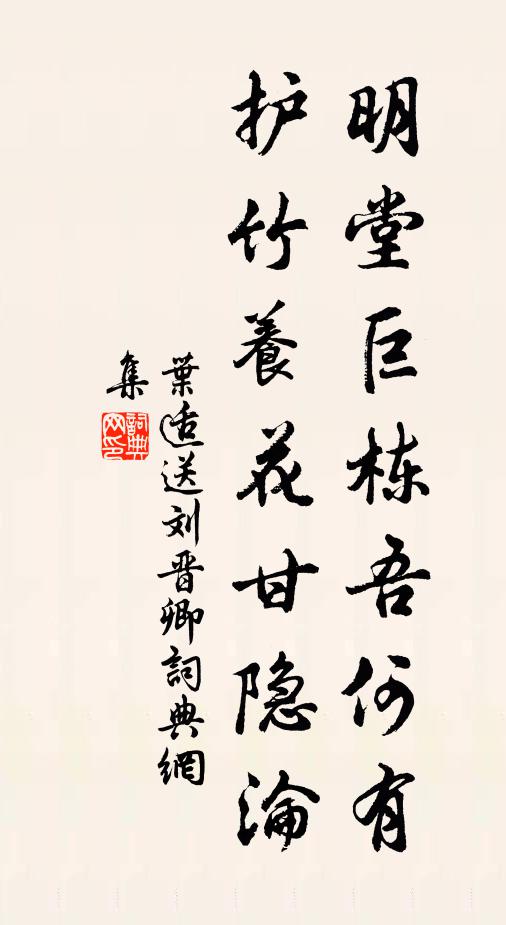 明堂巨栋吾何有
护竹養花甘隐淪
葉适送刘晋卿詞典網
集
詞典网印